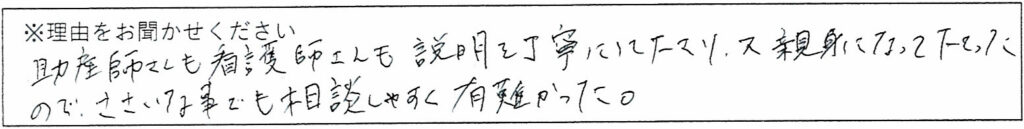 ※理由をお聞かせください
助産師さんも看護師さんも説明を丁寧にして下さり、又親身になって下さった
ので、ささいな事でも相談しやすく有難かった。